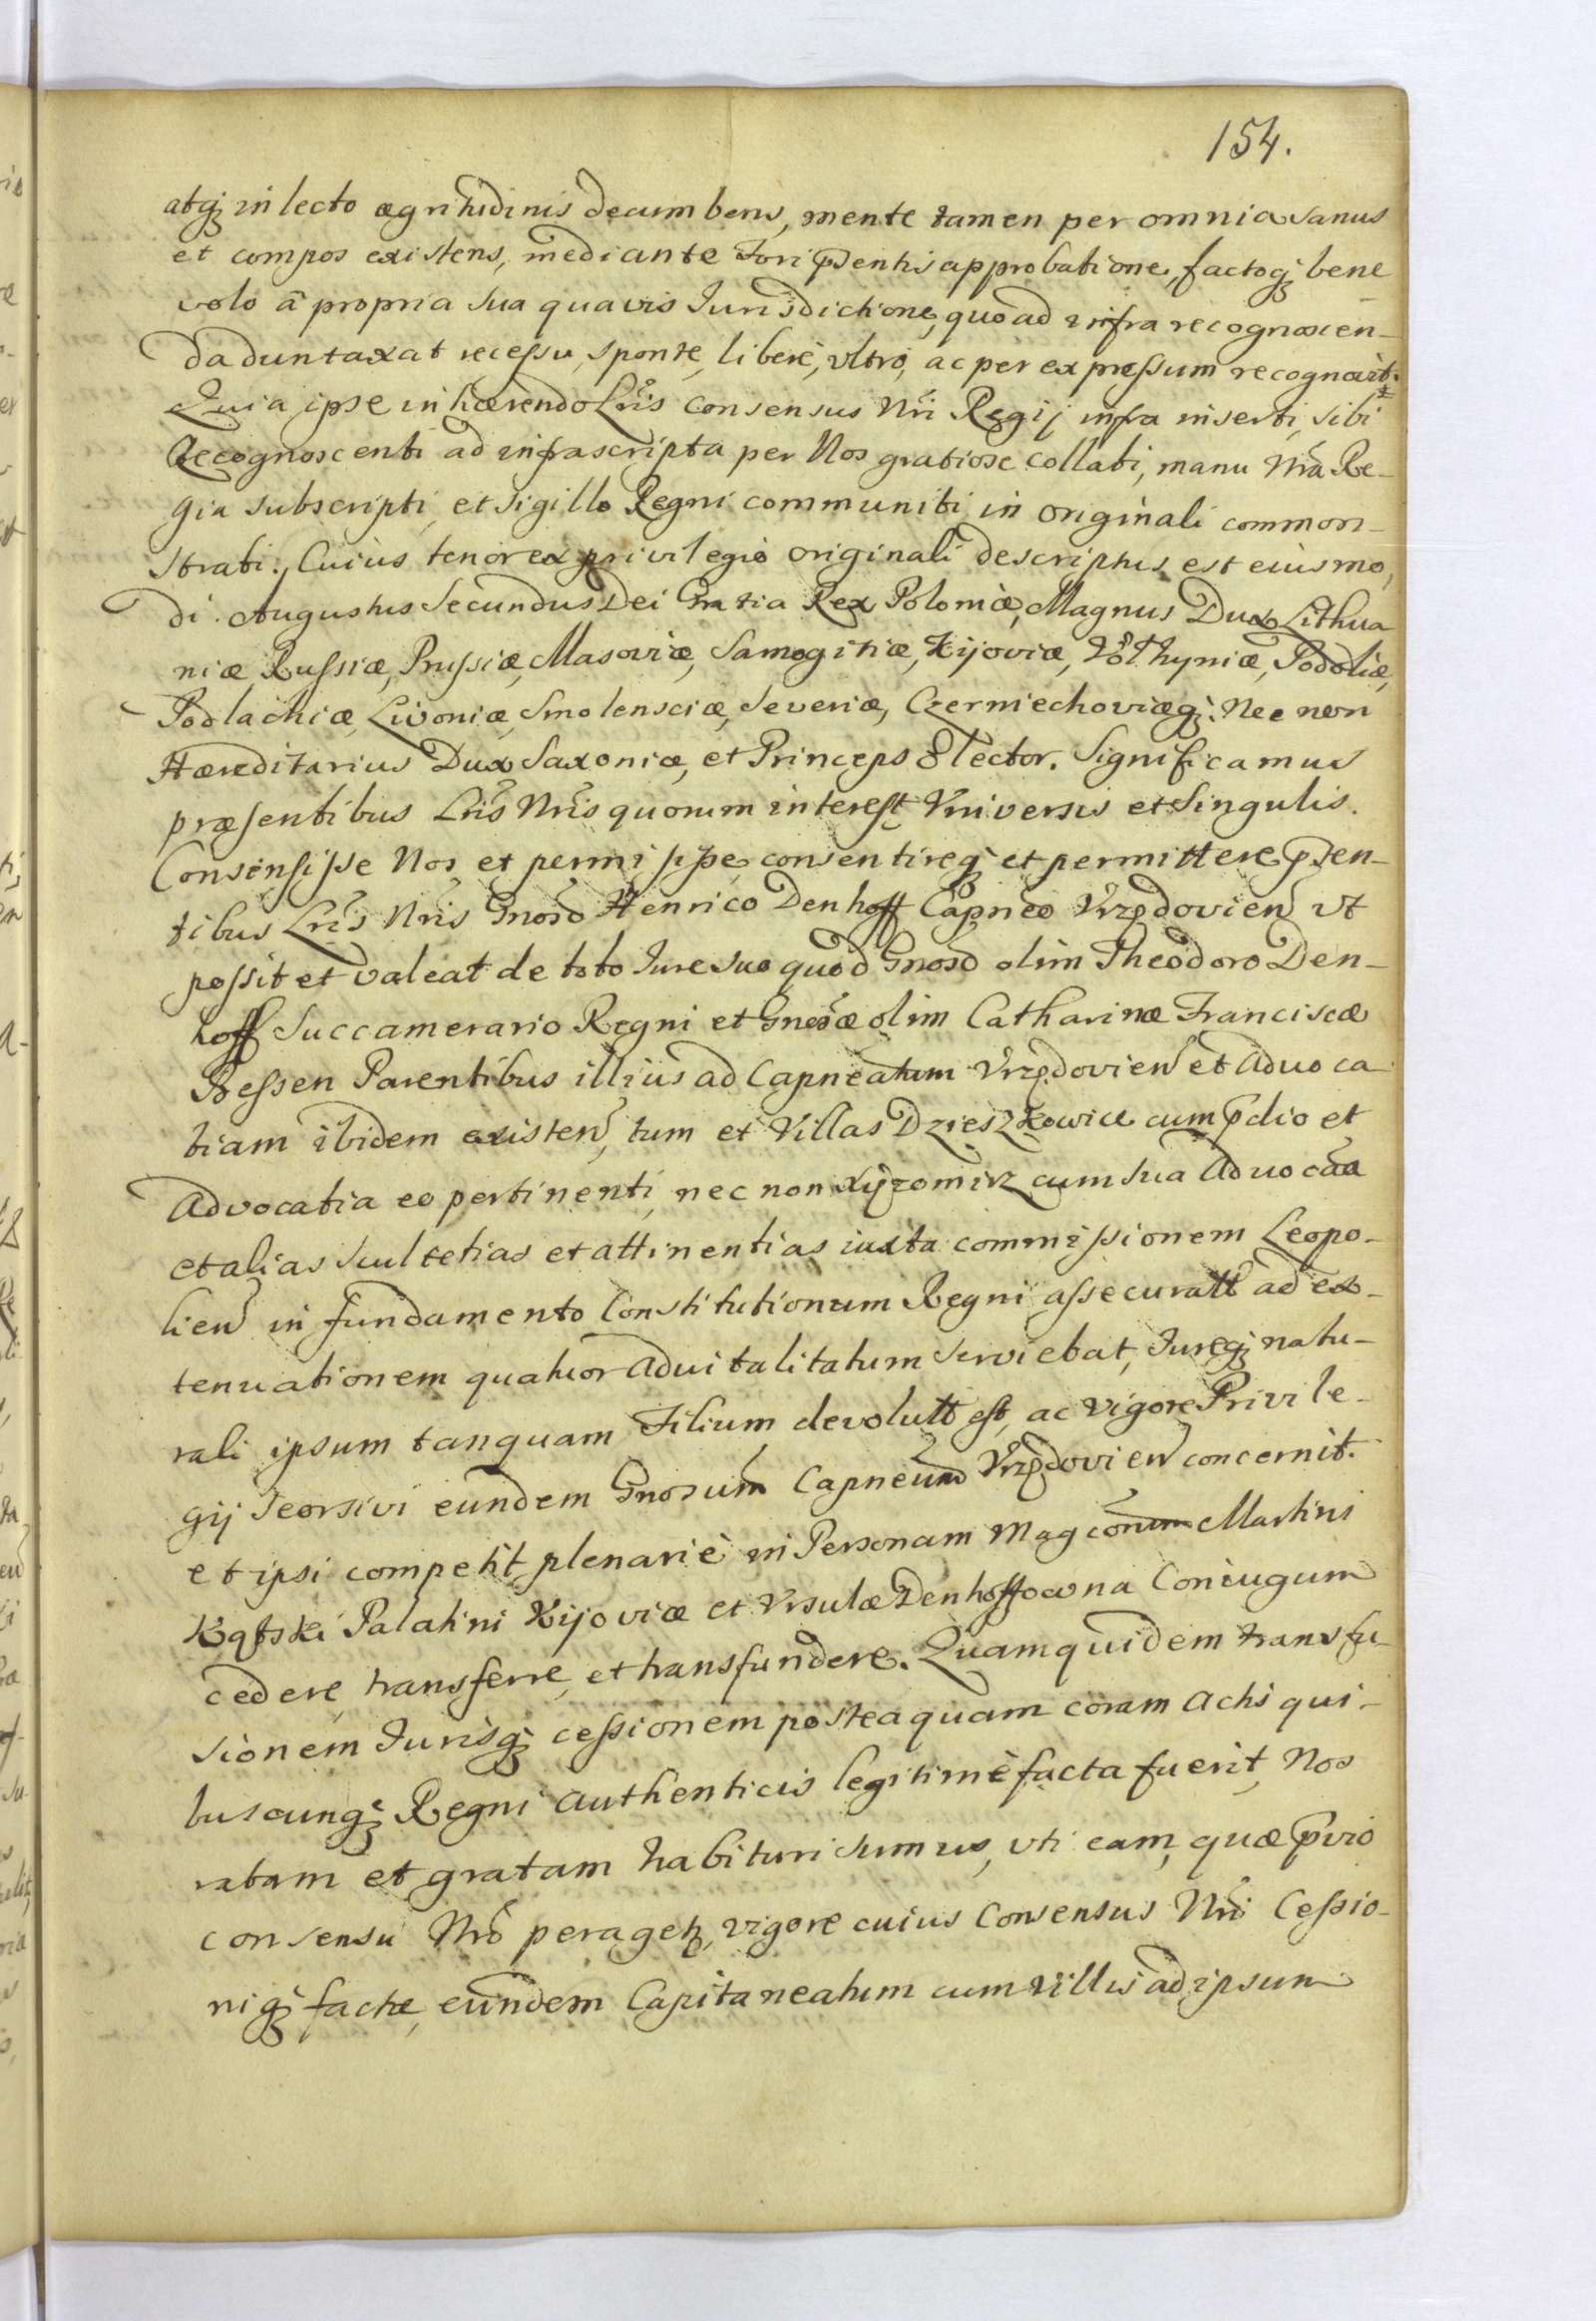 154.
atq; in lecto ægritudinis decumbens, mente tamen per omnia sanus
et compos existens, mediante Fori pñtis approbatione, factoq; bene
volo â propria sua quavis Jurisdictione, quo ad infra recognoscen-
da duntaxat recessu, sponte, liberè, vltrò, ac per expressum recognovit.
Quia ipse inhærendo Lr̃is Consensus Nr̃i Regij infra inserti, sibi
Recognoscenti ad infrascripta per Nos gratiose collati, manu Nr̃a Re-
gia subscripti, et Sigillo Regni communiti in originali common-
strati. Cuius tenor ex privilegio originali descriptus est eiusmo,
di. Augustus Secundus Dei Gratia Rex Poloniæ, Magnus Dux Lithua
niæ, Russiæ, Prussiæ, Masoviæ, Samogitiæ, Kijoviæ, Volhyniæ, Podoliæ,
Podlachiæ, Livoniæ, Smolensciæ, Severiæ, Czerniechoviæq; Nec non
Hæreditarius Dux Saxoniæ, et Princeps Elector. Significamus
præsentibus Lr̃is Nr̃is quorum interest Vniversis et Singulis.
Consensisse Nos et permisisse, consentireq; et permittere pñsen-
tibus Lr̃is Nr̃is Gnoso Henrico Denhoff Capneo Vrzędovien̄ vt
possit et valeat de toto Jure suo quod Gnoso olim Theodoro Den-
hoff Succamerario Regni et Gnosæ olim Catharinæ Franciscæ
Bessen Parentibus illius ad Capneatum Vrzędovien̄ et Advoca
tiam ibidem existen̄, tum et Villas Dzieszkowice cum p̃dio et
Advocatia eo pertinenti, nec non Xyżomirz cum sua Advocãa
et alias Scultetias et attinentias iuxta commissionem Leopo-
lien̄ in fundamento Constitutionum Regni assecuratt ad ex-
tenuationem quatuor advitalitatum serviebat, Jureq; natu-
rali ipsum tanquam Filium devolutt est, ac vigore Privile-
gij seorsivi eundem Gnosum Capneum Vrzędovien̄ concernit.
et ipsi competit plenariè in Personam Magcorum Martini
Kątski Palatini Kijoviæ et Vrsulæ Denhoffowna Coniugum
cedere, transferre, et transfundere. Quam quidem transfu-
sionem Jurisq; cessionem posteaquam coram Actis qui-
buscunq; Regni authenticis legitimè facta fuerit, Nos
ratam et gratam habituri sumus, vti eam, quæ p̃vio
consensu Nr̃o peragetr, vigore cuius Consensus Nr̃i Cessio-
niq; factæ, eundem Capitaneatum cum villis ad ipsum